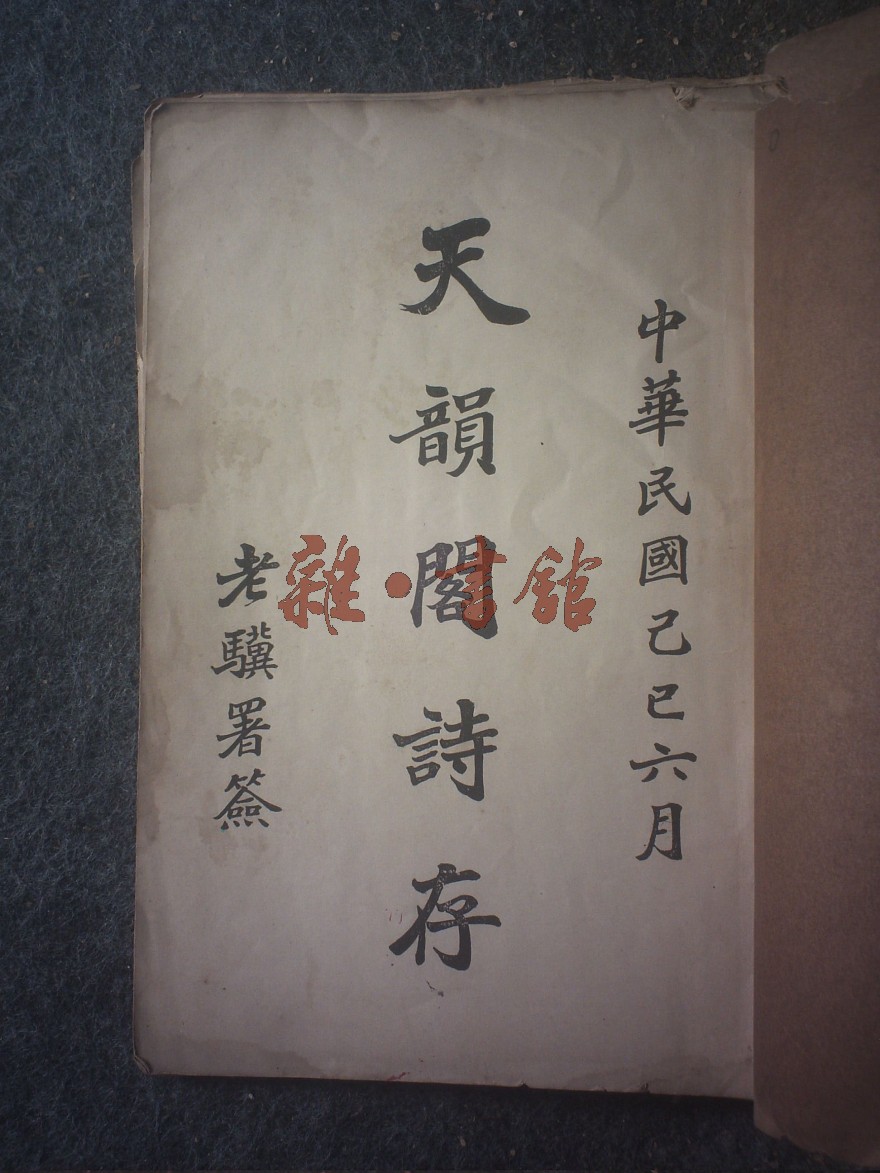 中華民國己巳六月
天韻閣詩存
老驥署簽
雜·書館